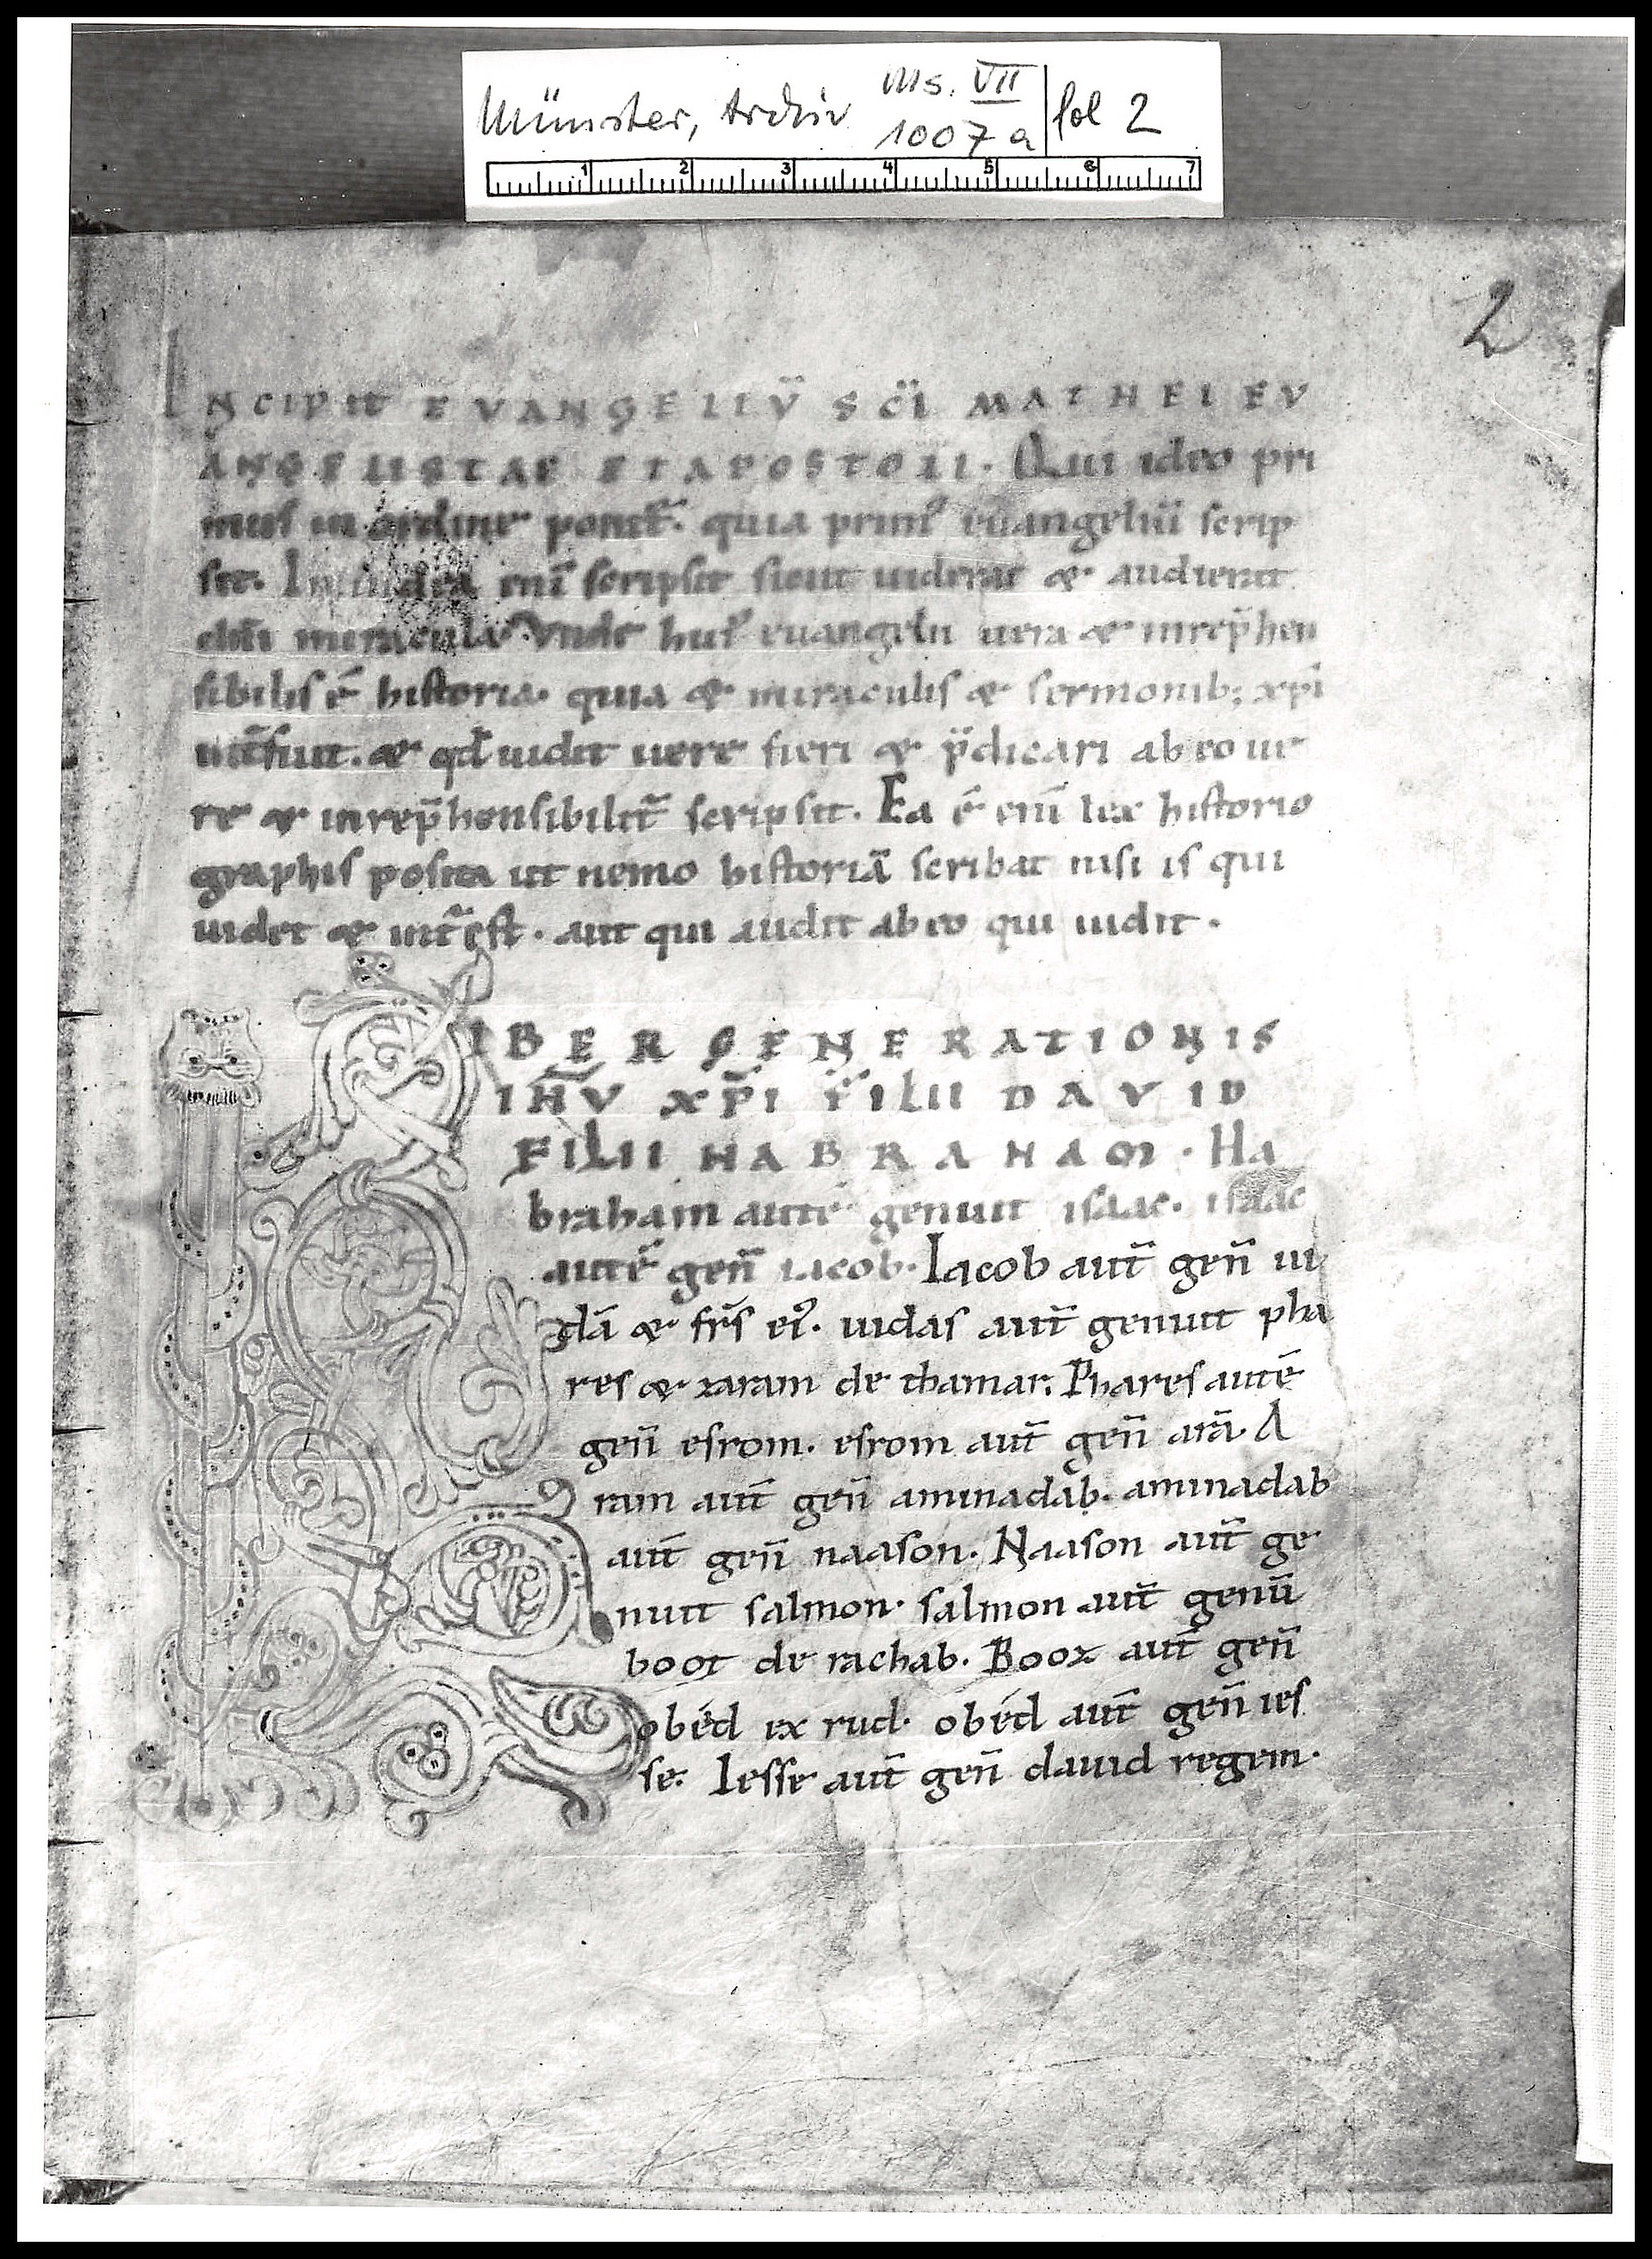 Münster, Archiv Ms. VII 1007a fol 2
1 2 3 4 5 6 7
2
INCIPIT EVANGELIV̄ SC̄I MATHEI EV
ANGELISTAE ET APOSTOLI. Qui ideo pri
mus in ordine ponit᷑. quia prim᷒ euangeliū scrip
sit. In iudea eni᷑ scripsit sicut uiderat & audierat
miracula. Vnde hui᷒ euangelii uera & inrep̄hen
sibilis ē historia. quia & miraculis & sermonib; xp̄i
int̄fuit. & qd̄ uidit uere fieri & p̄dicari ab eo ue
re & inrep̄hensibilit̄ scripsit. Ea ē eni᷑ lex historio
graphis posita ut nemo historiā scribat nisi is qui
uidet & int̄est. aut qui audit ab eo qui uidit.
LIBER GENERATIONIS
IH̄V XP̄I FILII DAVID
FILII HABRAHAM. Ha
braham autē genuit isaac. isaac
autē gen̄ iacob. Iacob aut̄ gen̄ iu
dā & fr̄s ei᷒. iudas aut̄ genuit pha
res & zaram de thamar. Phares autē
gen̄ esrom. esrom aut̄ gen̄ arā. A
ram aut̄ gen̄ aminadab. aminadab
aut̄ gen̄ naason. Naason aut̄ ge
nuit salmon. salmon aut̄ genū
booz de rachab. Booz aut̄ gen̄
obéd ex rud. obéd aut̄ gen̄ ies
se. Iesse aut̄ gen̄ dauid regem.